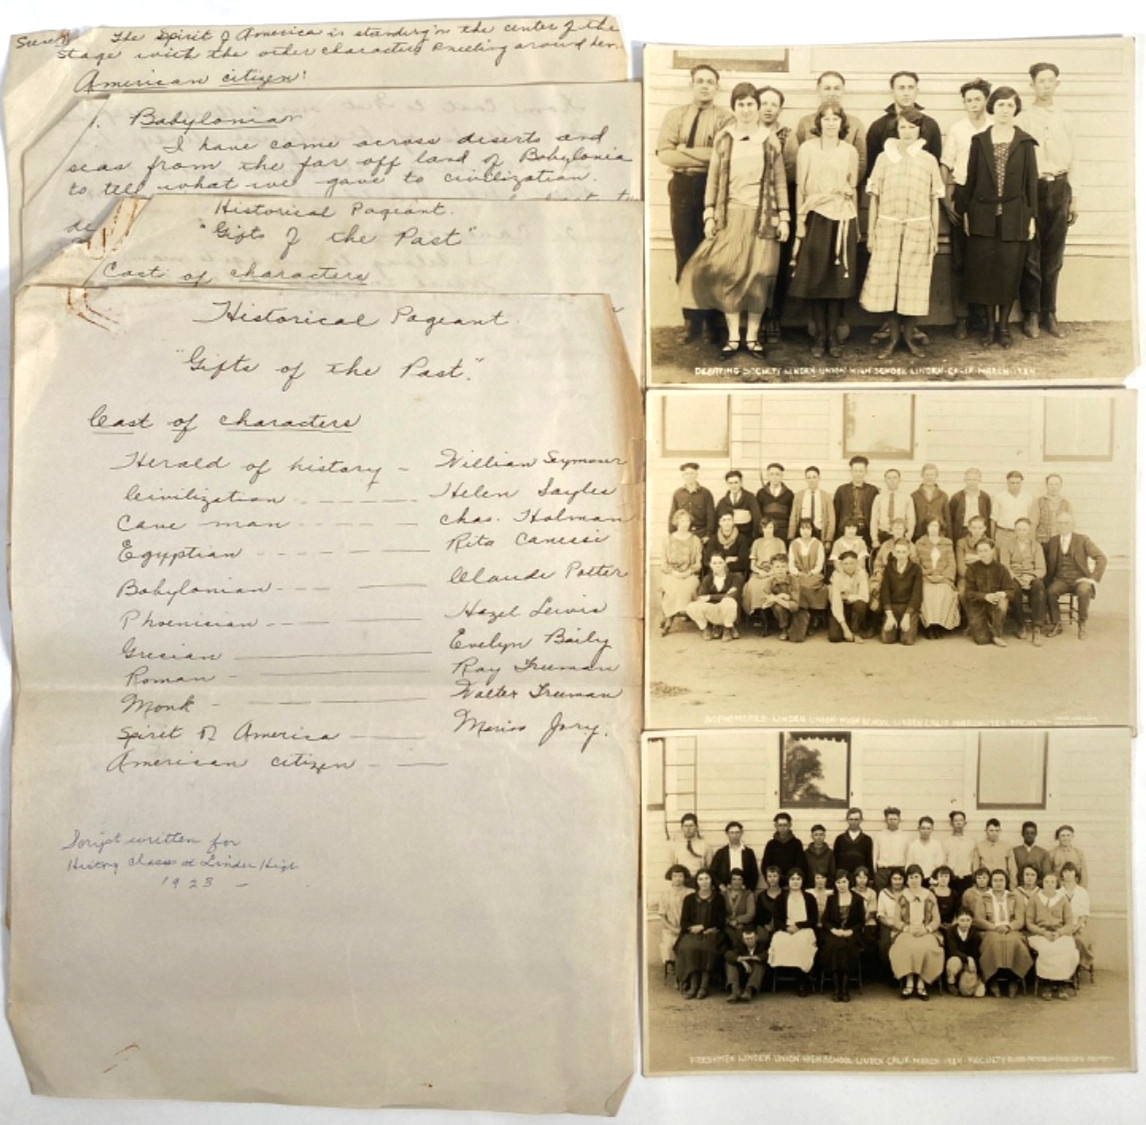 Scene
The Spirit of America is standing in the center of the
stage with the other characters kneeling around her.
American citizen:
1. Babylonian
I have come across deserts and
seas from the far off land of Babylonia
to tell what we gave to civilization.
de
Historical Pageant.
"Gifts of the Past"
Cast of characters
Historical Pageant.
"Gifts of the Past."
Cast of characters
Herald of history - William Seymour
Civilization - - - - - - Helen Sayles
Cave man - - - - - Chas. Holman
Egyptian - - - - - - Rita Canessi
Babylonian - - - - Claude Potter
Phoenician - - - - Hazel Lewis
Grecian - Evelyn Baily
Roman - - Ray Truman
Monk - - - Walter Truman
Spirit of America - - Marion Jory.
American citizen - -
Script written for
History Class at Linden High
1923 -
DEBATING SOCIETY LINDEN UNION HIGH SCHOOL LINDEN CALIF. MARCH 1924
SOPHOMORES LINDEN UNION HIGH SCHOOL LINDEN CALIF. MARCH
FRESHMEN LINDEN UNION HIGH SCHOOL LINDEN CALIF. MARCH 1924 FACULTY